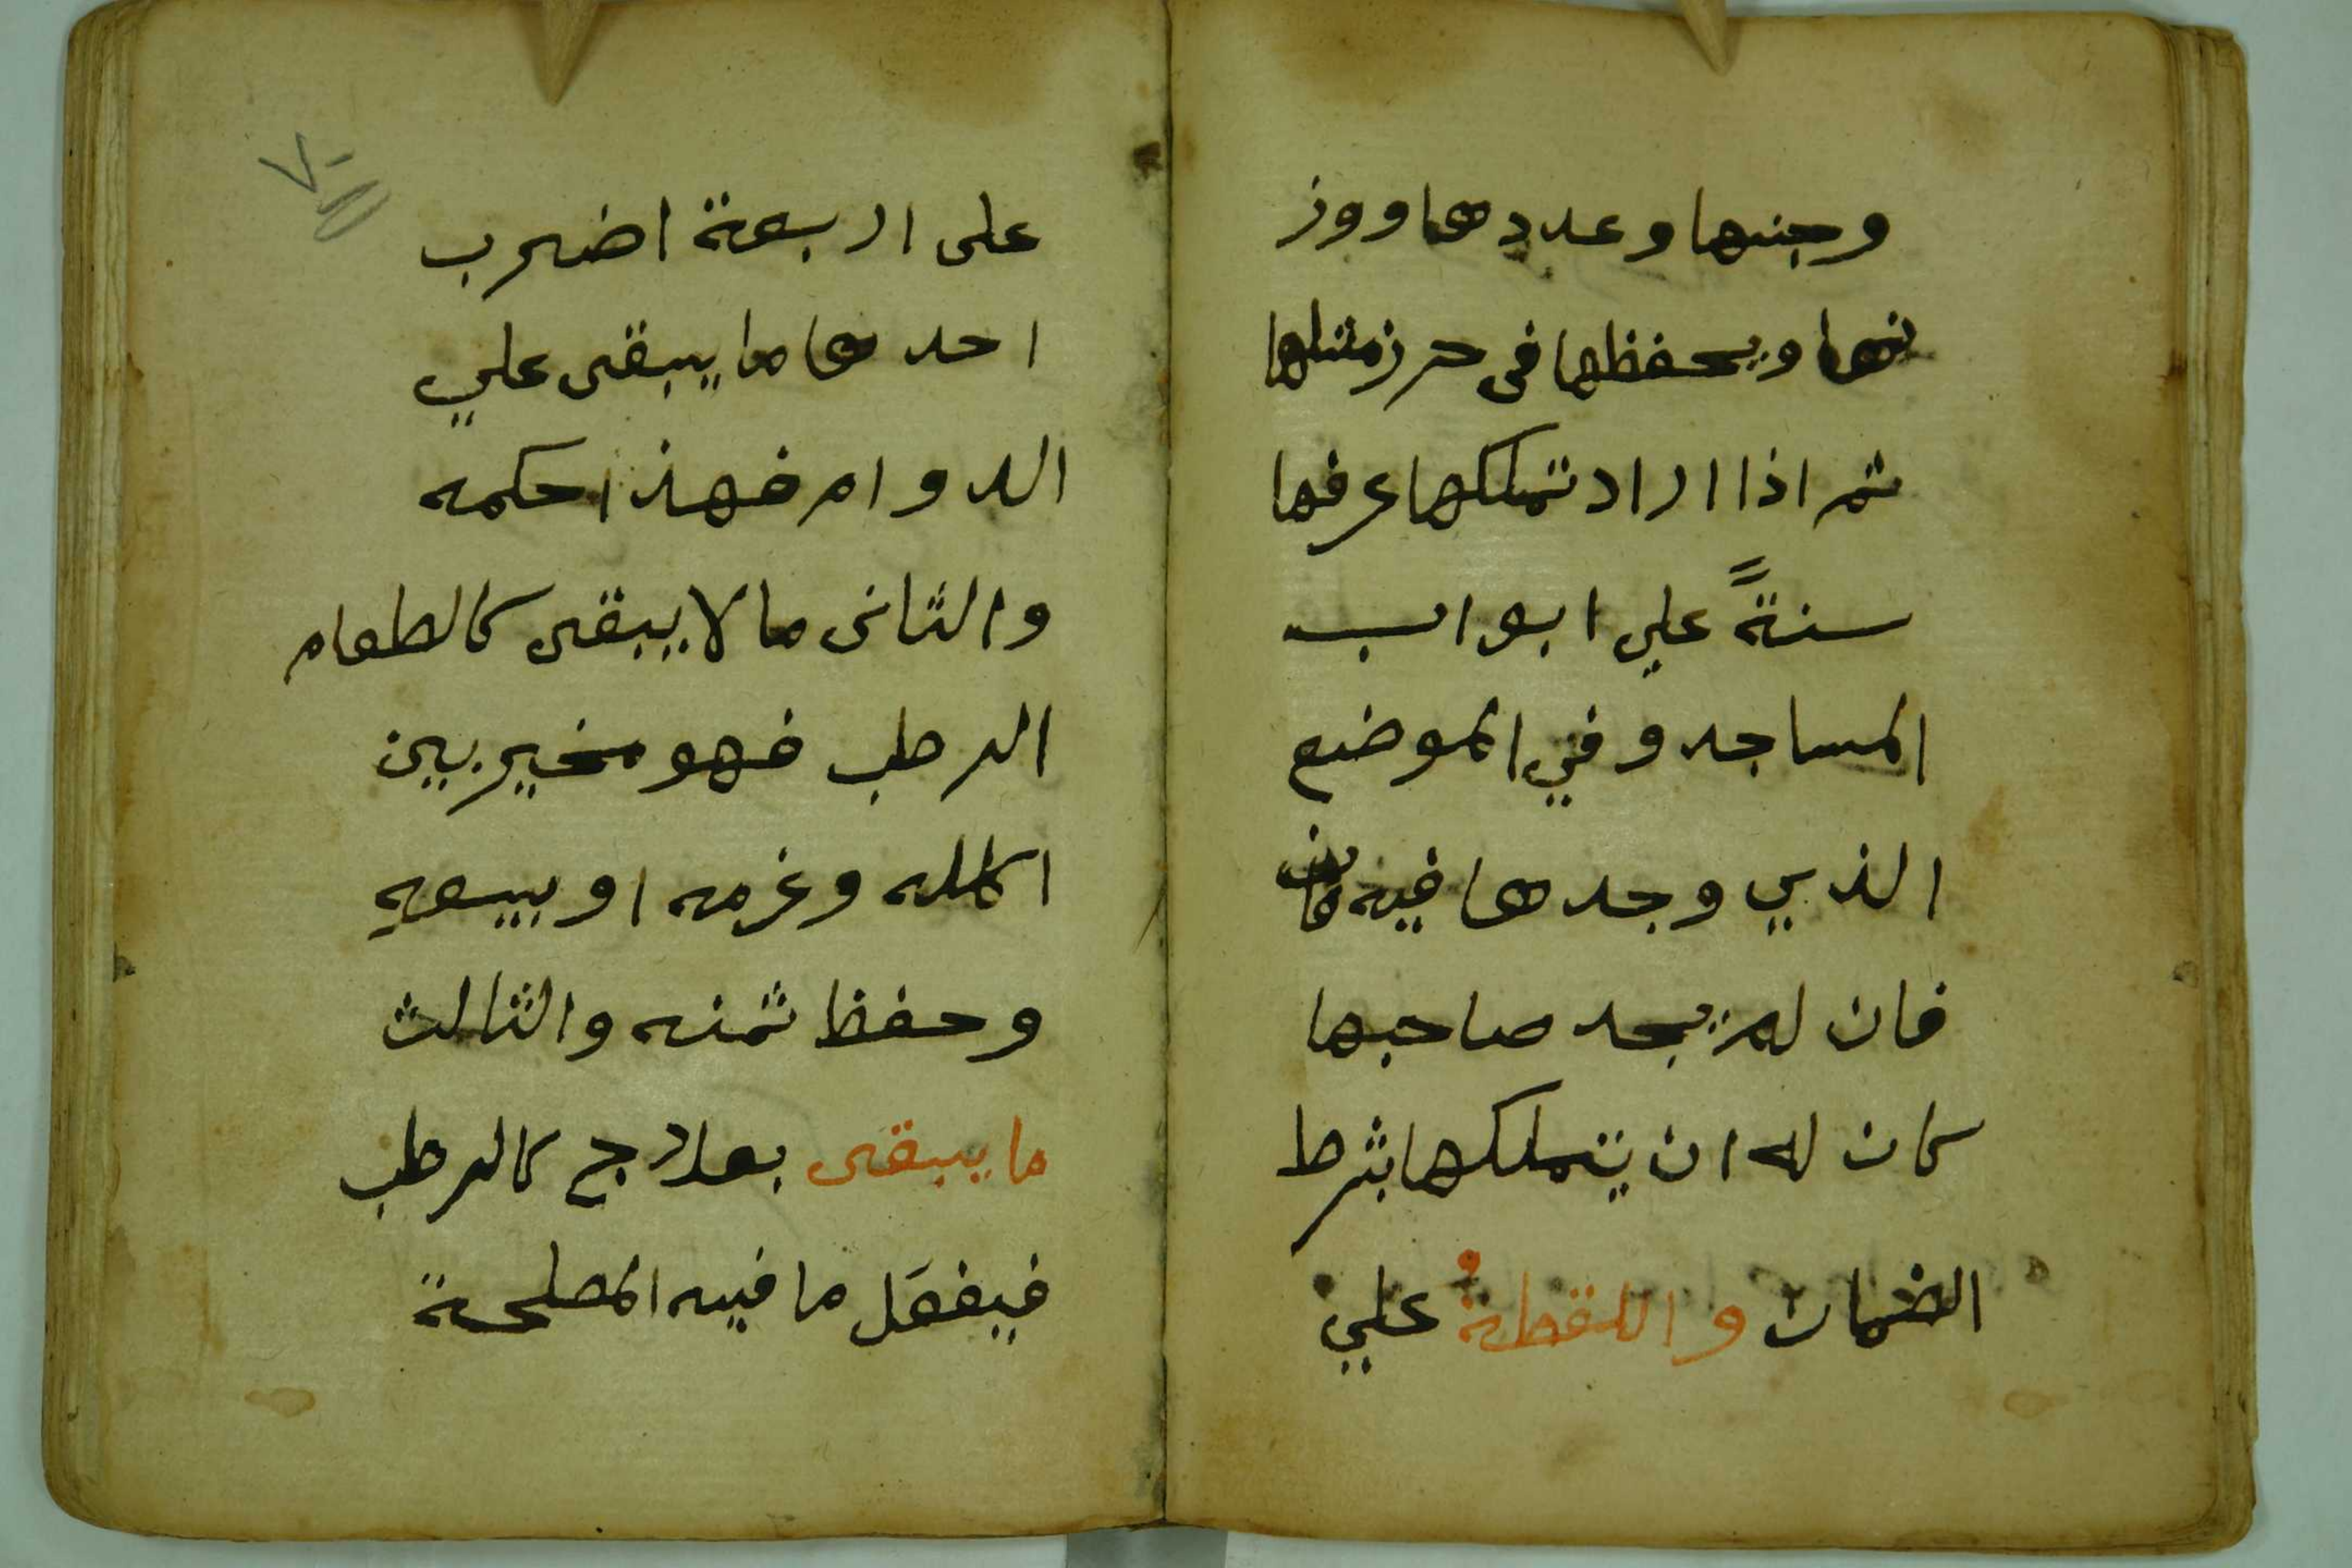 وجنسها وعددها ووز
نها ويحفظها في حرز مثلها
ثم اذا اراد تملكها عرفها
سنةً علي ابواب
المساجد وفي الموضع
الذي وجدها فيه
فان لم يجد صاحبها
كان له ان يتملكها بشرط
الضمان واللقطةُ علي
على اربعة اضرب
احدها ما يبقى علي
الدوام فهذا حكمه
والثانى ما لا يبقى كالطعام
الرطب فهو مخير بين
اكله وغرمه او بيعه
وحفظ ثمنه والثالث
ما يبقى بعلاج كالرطب
فيفعَل ما فيه المصلحة